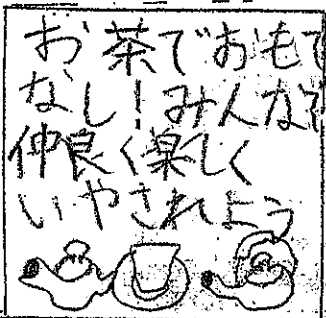 お茶でおもて
なし！みんなで
仲良く楽しく
いやされよう